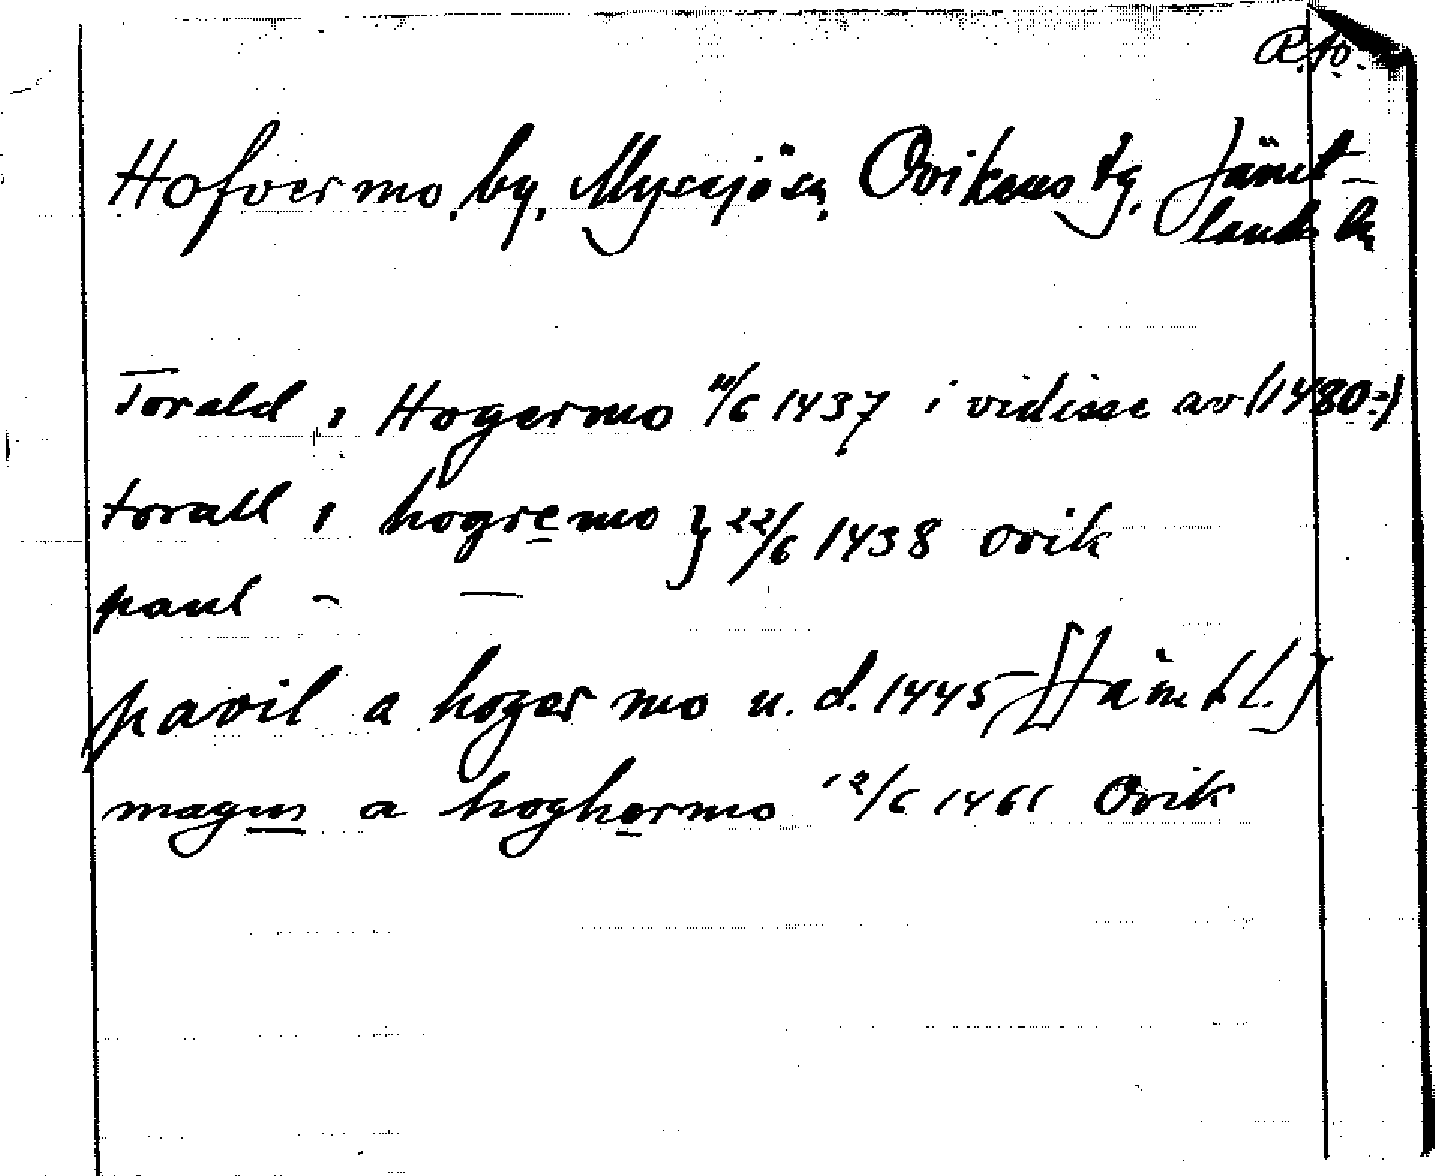 P. to.
Hofvermo, by, Myssjö sn, Ovikens tg. Jämt-
lands ln
Torald i Hogermo 11/6 1437 i vidisse av (1480-)
torall i hogremo } 22/6 1438 Ovik
paul - —
pavil a hoger mo u. d. 1445 [Jämtl.]
magus a hoghermo 12/6 1461 Ovik